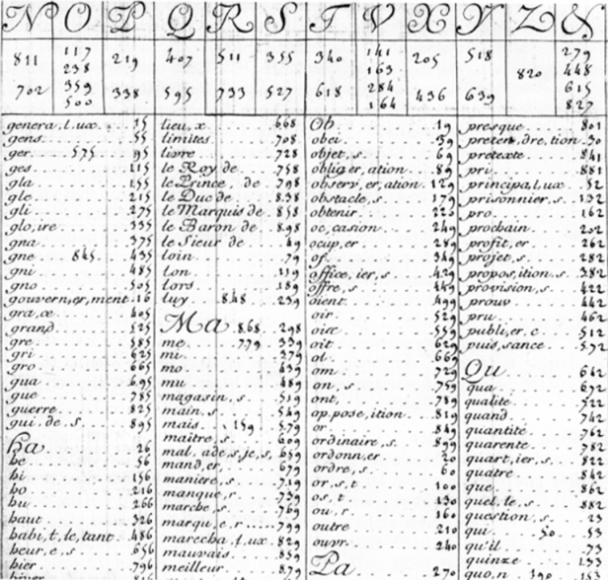 N O P Q R S T V X Y Z &
811 117 219 407 511 355 340 141 205 518 279
238 163 820 448
702 359 338 595 733 527 618 284 436 639 615
500 164 827
genera, l, ux 15
gens 55
ger 575 95
ges 115
gla 155
gle 215
gli 275
glo, ire 335
gna 375
gne 845 435
gni 485
gno 505
gouvern, er, ment 16
gra, æ 405
grand 525
gre 585
gri 625
gro 665
gua 695
gue 785
guerre 825
gui, de, s 895
Ha 26
he 56
hi 156
ho 216
hu 266
haut 326
habi, t, le, tant 486
heur, e, s 656
hier 796
lieu, x 668
limites 708
livre 728
le Roy de 758
le Prince, de 798
le Duc de 838
le Marquis de 858
le Baron de 898
le Sieur de 49
loin 79
Lon 119
Lors 189
luy 848 239
Ma 868 298
me 779 339
mi 379
mo 439
mu 489
magasin, s 519
main, s 549
mais 159 579
maitre, s 609
mal, ade, s, je, s 659
mand, er 679
maniere, s 719
manque, r 739
marche, s 769
marqu, e, r 799
marecha, l, ux 829
mauvais 859
meilleur 879
Ob 19
obei 59
objet, s 69
oblig, er, ation 89
observ, er, ation 129
obstacle, s 179
obtenir 225
oc, casion 249
ocup, er 289
of 349
office, ier, s 429
offre, s 449
oient 499
oir 529
oise 559
oit 629
ol 669
om 729
on, s 759
ont 789
op, pose, ition 819
or 849
ordinaire, s 899
ordonn, er 20
ordre, s 60
or, s, t 100
os, t 130
ou, r 160
outre 210
ouvr 240
Pa 270
presque 801
preten, dre, tion 30
pretexte 841
pri 881
principa, l, ux 52
prisonnier, s 132
pro 162
prochain 202
profit, er 262
projet, s 282
propos, ition, s 382
provision, s 422
prouv 442
pru 462
publi, er, c 512
puis, sance 592
Qu 642
qua 672
qualité 522
quand 742
quantité 762
quarente 782
quart, ier, s 822
quatre 842
que 862
quel, le, s 882
question, s 23
qui 50 53
qu'il 73
quinze 133
quo, n 190 153